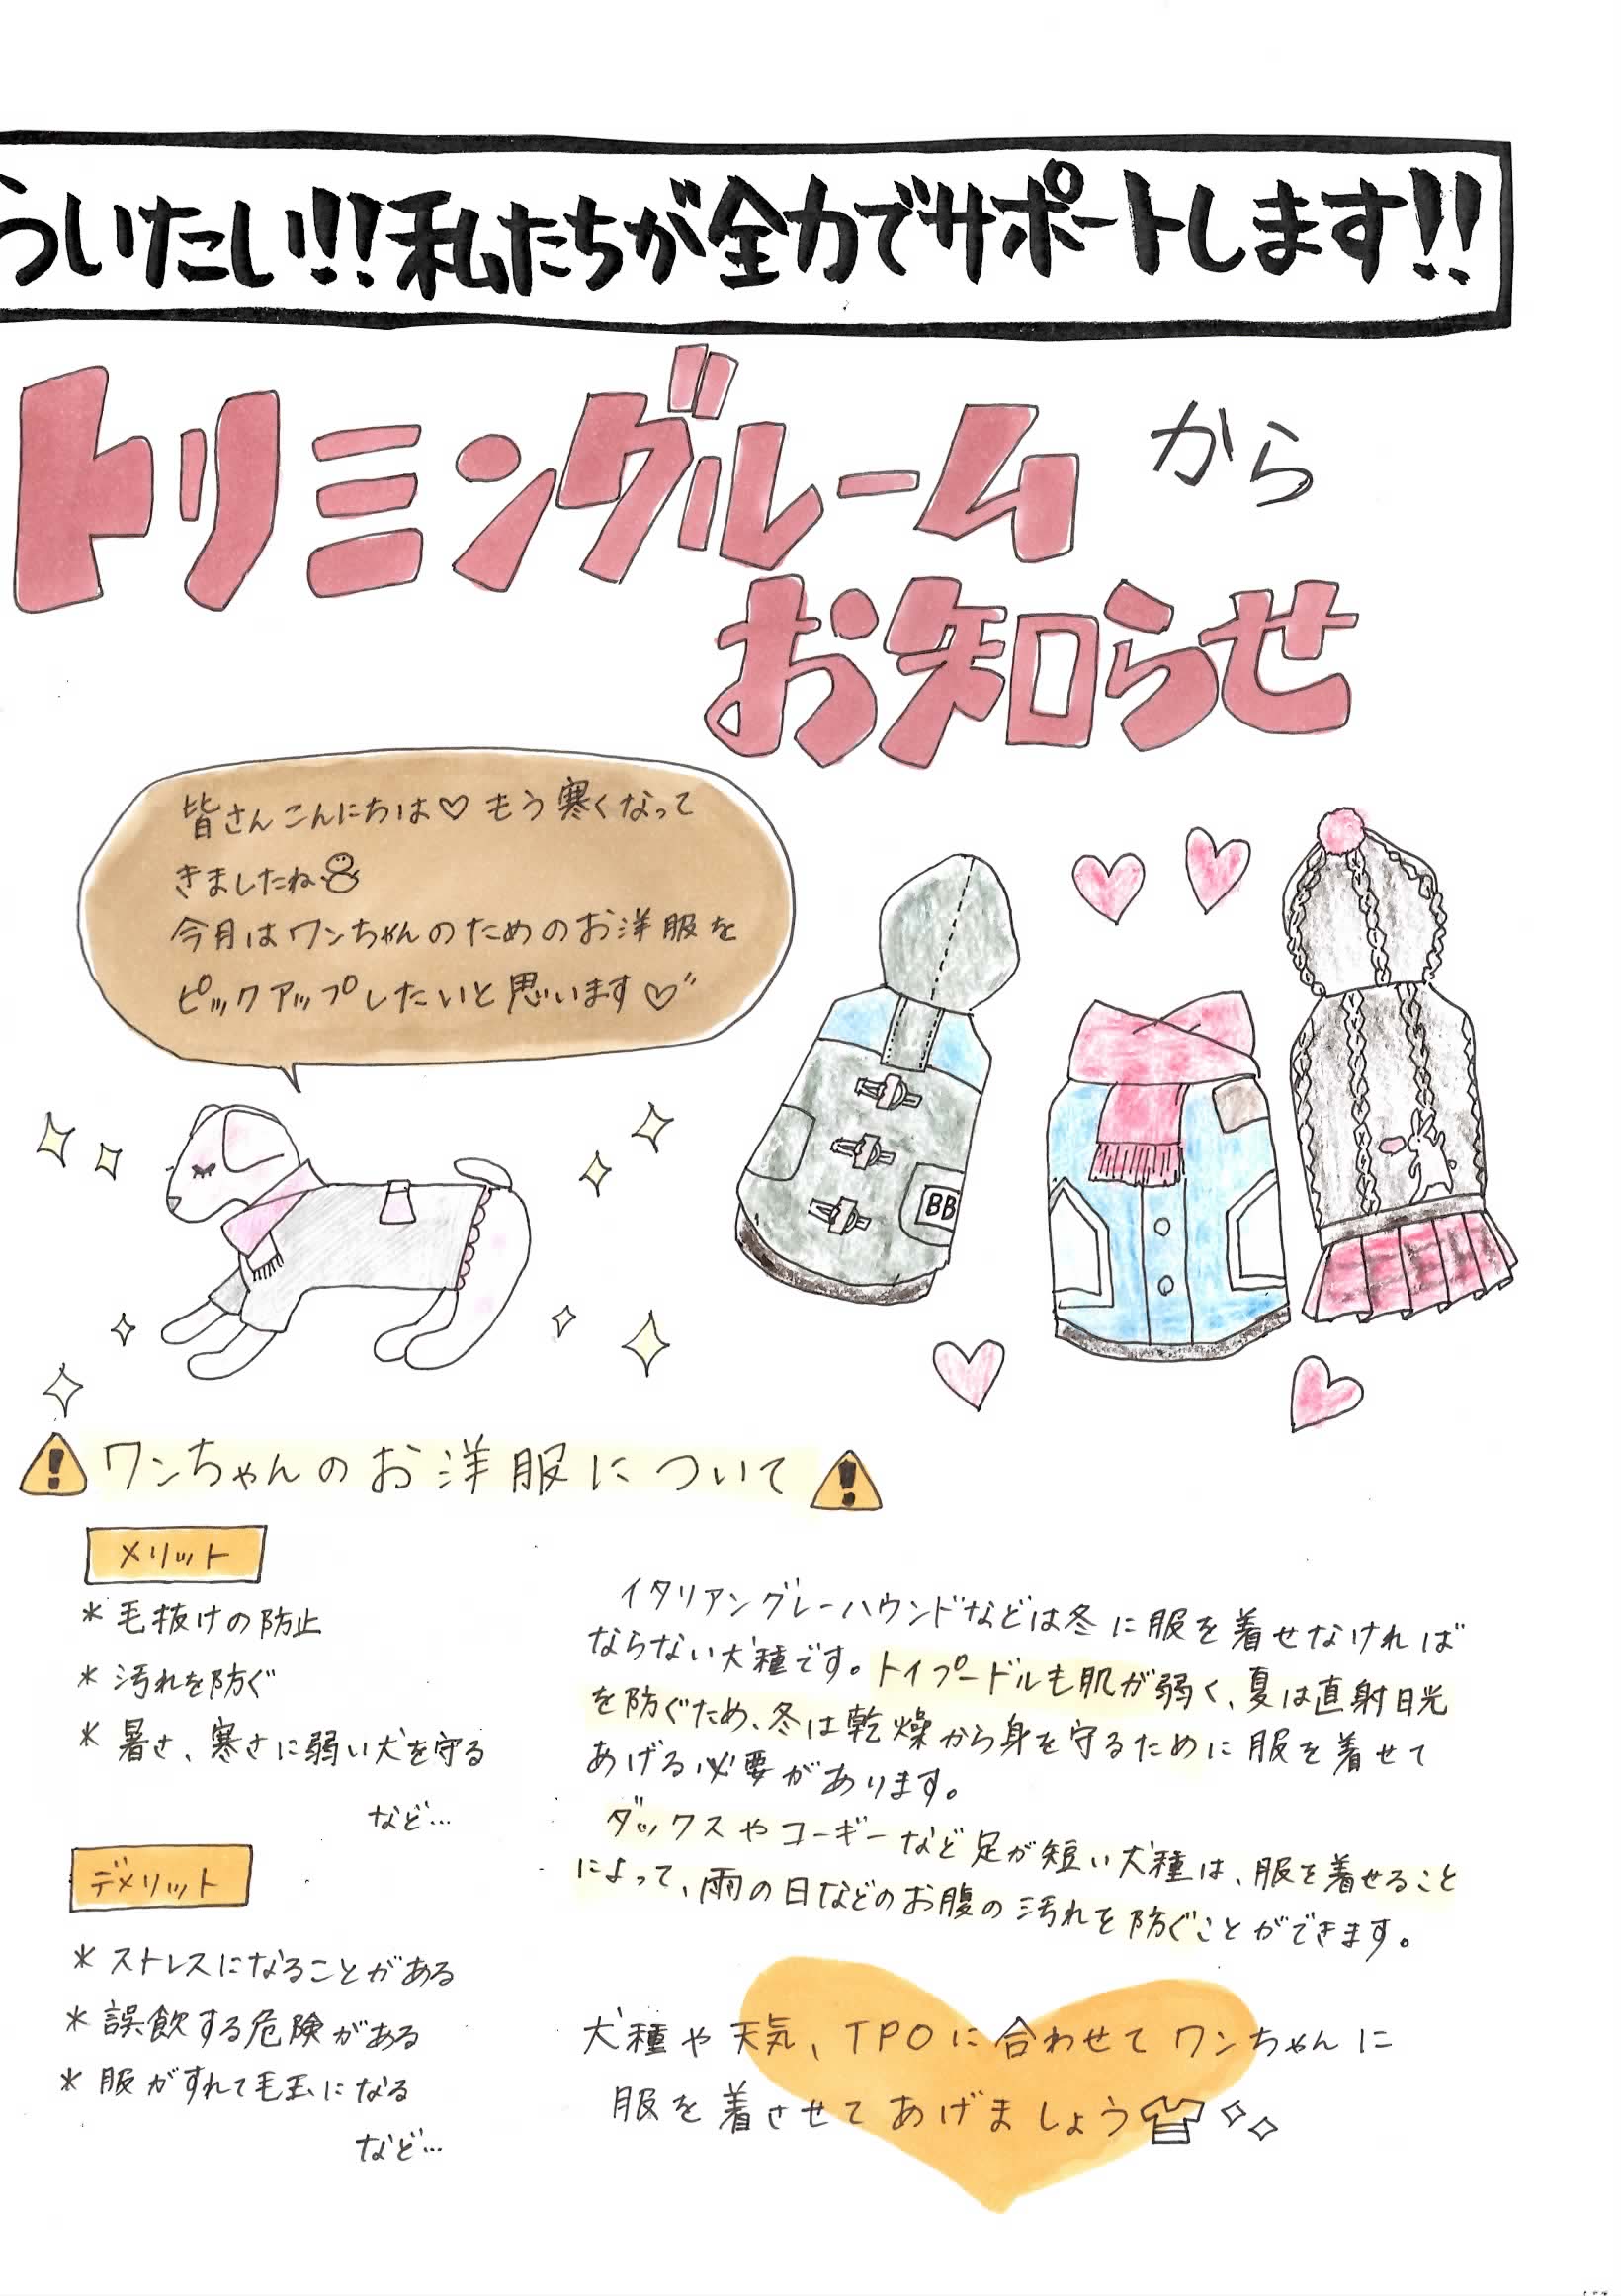 ういたい!!私たちが全力でサポートします!!
トリミングルームから
お知らせ
皆さんこんにちは♡もう寒くなって
きましたね
今月はワンちゃんのためのお洋服を
ピックアップしたいと思います♡"
BB
ワンちゃんのお洋服について
メリット
*毛抜けの防止
*汚れを防ぐ
*暑さ、寒さに弱い犬を守る
など…
デメリット
*ストレスになることがある
*誤飲する危険がある
*服がすれて毛玉になる
など…
イタリアングレーハウンドなどは冬に服を着せなければ
ならない犬種です。トイプードルも肌が弱く、夏は直射日光
を防ぐため、冬は乾燥から身を守るために服を着せて
あげる必要があります。
ダックスやコーギーなど足が短い犬種は、服を着せること
によって、雨の日などのお腹の汚れを防ぐことができます。
犬種や天気、TPOに合わせてワンちゃんに
服を着させてあげましょう